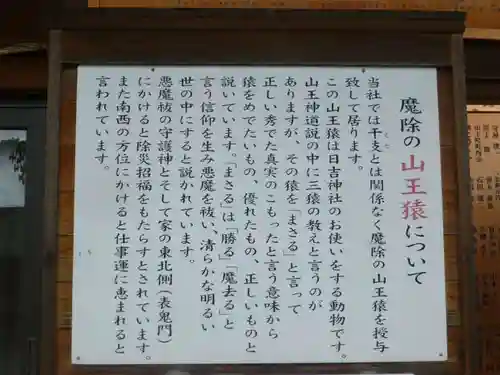 魔除の山王猿について
当社では干支とは関係なく魔除の山王猿を授与
致して居ります。
この山王猿は日吉神社のお使いをする動物です。
山王神道説の中に三猿の教えと言うのが
ありますが、その猿を「まさる」と言って
正しい秀でた真実のこもったと言う意味から
猿をめでたいもの、優れたもの、正しいものと
説いています。「まさる」は「勝る」「魔去る」と
言う信仰を生み悪魔を祓い、清らかな明るい
世の中にすると説かれています。
悪魔祓の守護神とそして家の東北側（表鬼門）
にかけると除災招福をもたらすとされています。
また南西の方位にかけると仕事運に恵まれると
言われています。